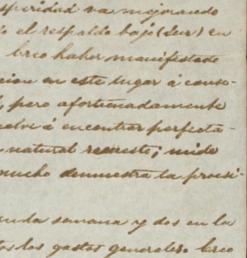 speridad va mejorando
o el respaldo bajo (der) en
creo haber manifestado
cion en este lugar á conse-
, pero afortunadamente
uelve á encontrar perfecta-
natural
mucho demuestra la preci-
unda semana y dos en la
os los gastos generales creo